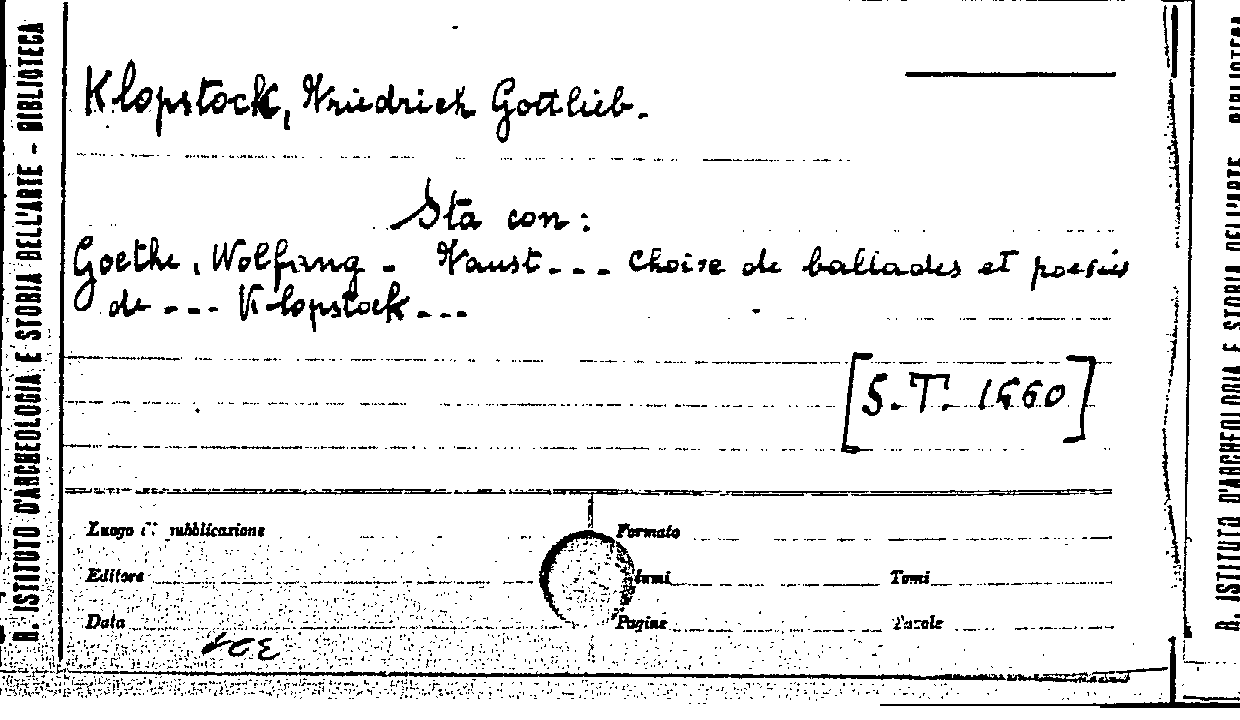 R. ISTITUTO D'ARCHEOLOGIA E STORIA DELL'ARTE - BIBLIOTECA
Klopstock, Friedrich Gottlieb.
Sta con:
Goethe, Wolfang - Faust... Choise de ballades et poesies
de --- Klopstock ---
[S.T. 1660]
Luogo di pubblicazione
Formato
Editore
Tomi
Data
Pagine
Tavole
R. ISTITUTO D'ARCHEOLOGIA E STORIA DELL'ARTE BIBLIOTECA